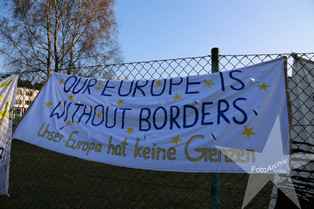 OUR EUROPE IS
WITHOUT BORDERS
Unser Europa hat keine Grenzen
FotoArchiv